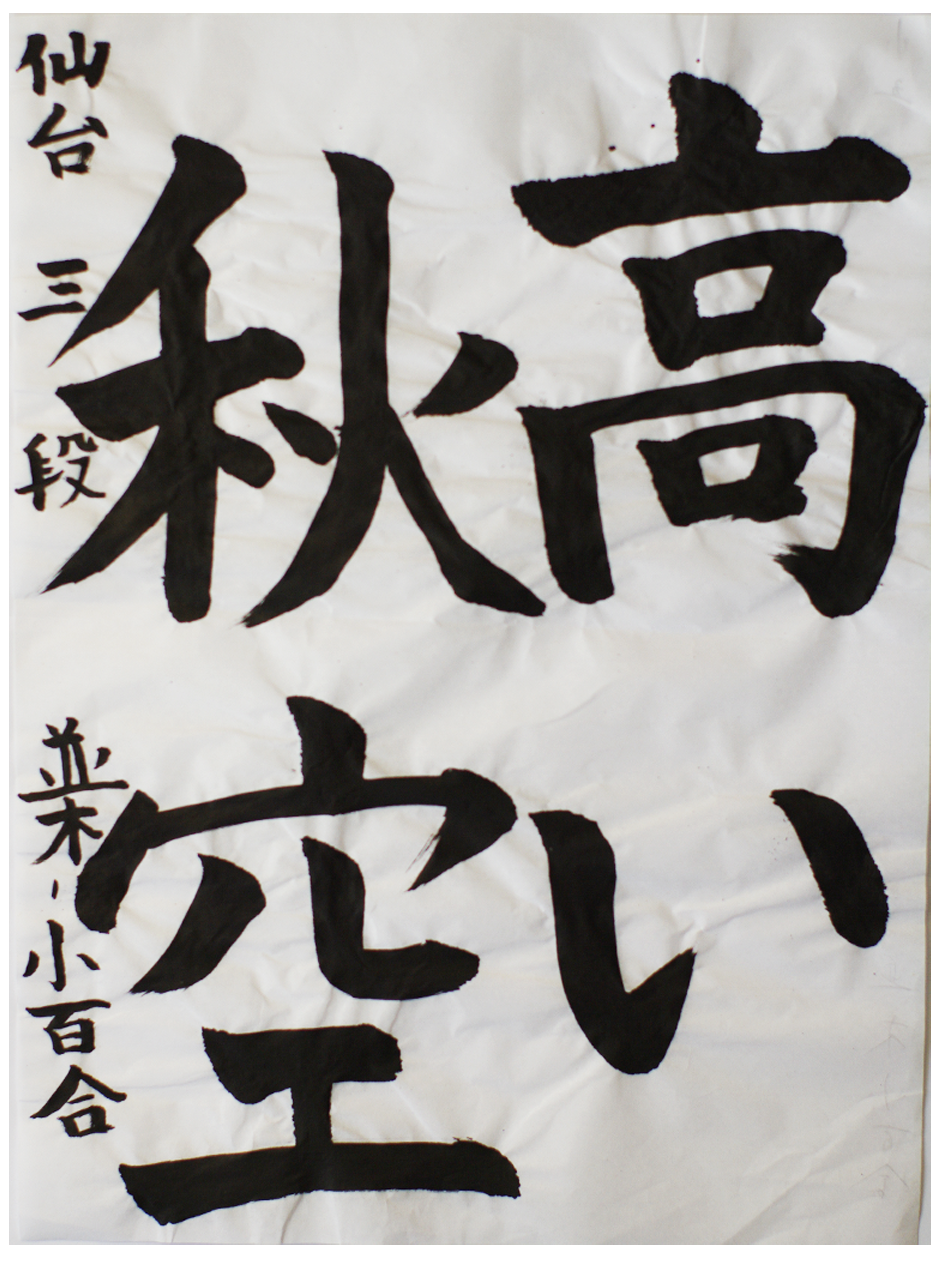 高い
秋空
仙台 三段 並木小百合